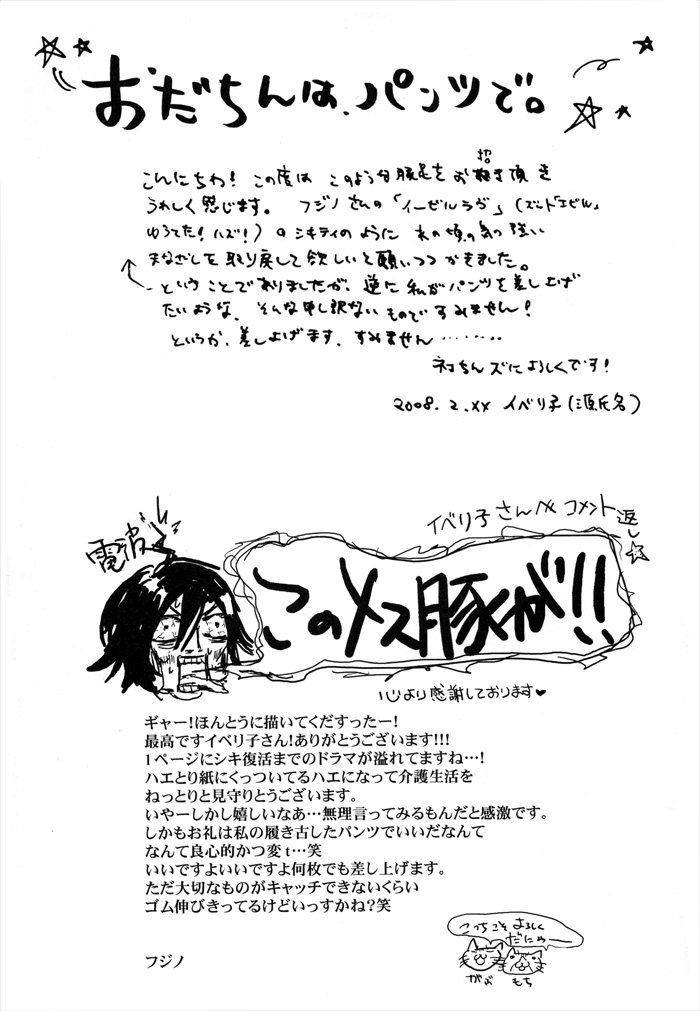 おだちんは、パンツで。
こんにちわ！ この度は このような豚足をお招き頂き
うれしく感じます。 フジノさんの「イーゼルラヴ」
まなざしを取り戻して欲しいと願いつつかきました。
ということでありましたが、逆に私がパンツを差し上げ
たいような、そんな申し訳ないものですみません！
というか、差し上げます、すみません………
ネコちんズによろしくです！
2008.2.xx イベリ子(源氏名)
イベリ子さんへ コメント返し
電波
このメス豚が!!
心より感謝しております♥
ギャー！ほんとうに描いてくだすったー！
最高ですイベリ子さん！ありがとうございます!!!
1ページにシキ復活までのドラマが溢れてますね…！
ハエとり紙にくっついてるハエになって介護生活を
ねっとりと見守りとうございます。
いやーしかし嬉しいなあ…無理言ってみるもんだと感激です。
しかもお礼は私の履き古したパンツでいいだなんて
なんて良心的かつ変t…笑
いいですよいいですよ何枚でも差し上げます。
ただ大切なものがキャッチできないくらい
ゴム伸びきってるけどいっすかね？笑
フジノ
こっちこそよろしく
だにゃー
がぶ もち